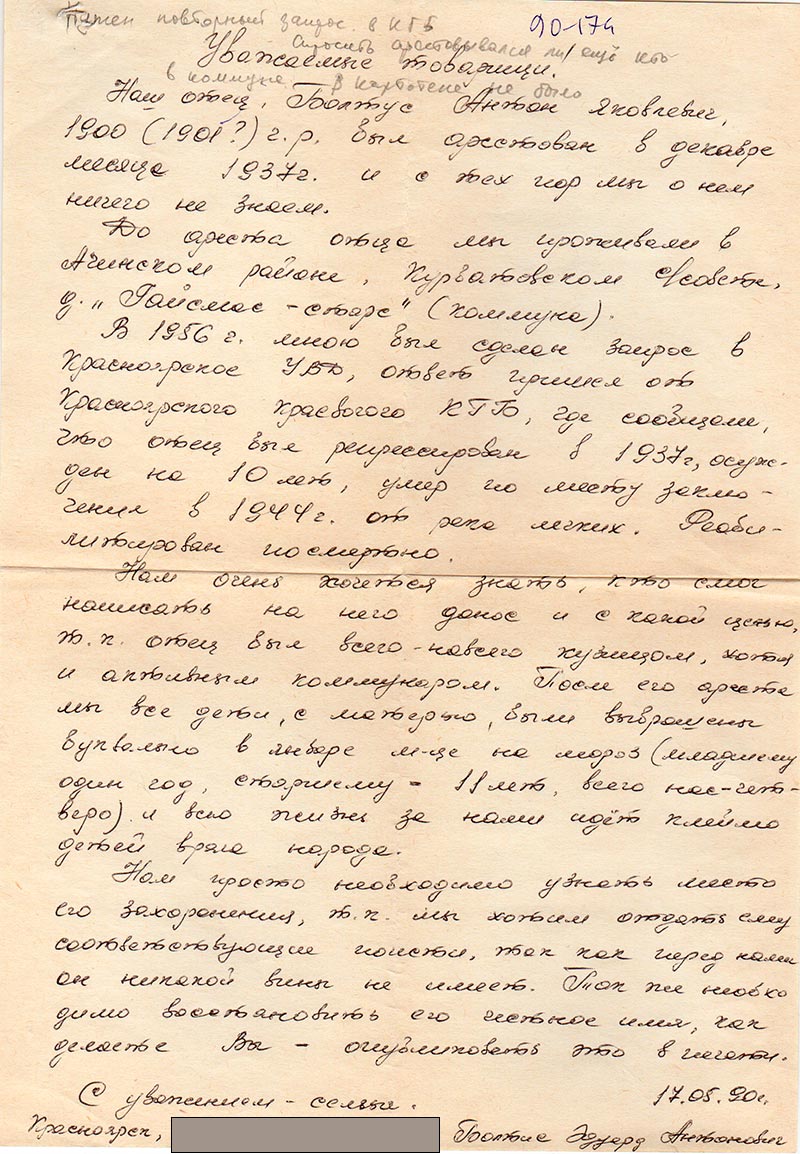 Нужен повторный запрос в КГБ
90-174
Спросить арестовывался ли ещё кто
Уважаемые товарищи.
в коммуне. В картотеке не было
Наш отец, Болтус Антон Яковлевич,
1900 (1901?) г.р. был арестован в декабре
месяце 1937г. и с тех пор мы о нем
ничего не знаем.
До ареста отца мы проживали в
Ачинском районе, Курбатовском с/совете,
д. „Гайсмас-старс" (коммуна).
В 1956 г. мною был сделан запрос в
Красноярское УВД, ответ пришел от
Красноярского краевого КГБ, где сообщали,
что отец был репрессирован в 1937г, осуж-
ден на 10 лет, умер по месту заклю-
чения в 1944г. от рака легких. Реаби-
литирован посмертно.
Нам очень хочется знать, кто смог
написать на него донос и с какой целью,
т.к. отец был всего-навсего кузнецом, хотя
и активным коммунаром. После его ареста
мы все дети, с матерью, были выброшены
буквально в январе м-це на мороз (младшему
один год, старшему - 11 лет, всего нас-чет-
веро) и всю жизнь за нами идёт клеймо
детей врага народа.
Нам просто необходимо узнать место
его захоронения, т.к. мы хотим отдать ему
соответствующие почести, так как перед нами
он никакой вины не имеет. Так же необхо
димо восстановить его честное имя, как
делаете Вы - опубликовать это в печати.
С уважением - семья. 17.05.90г.
Красноярск, Болтус Эдуард Антонович